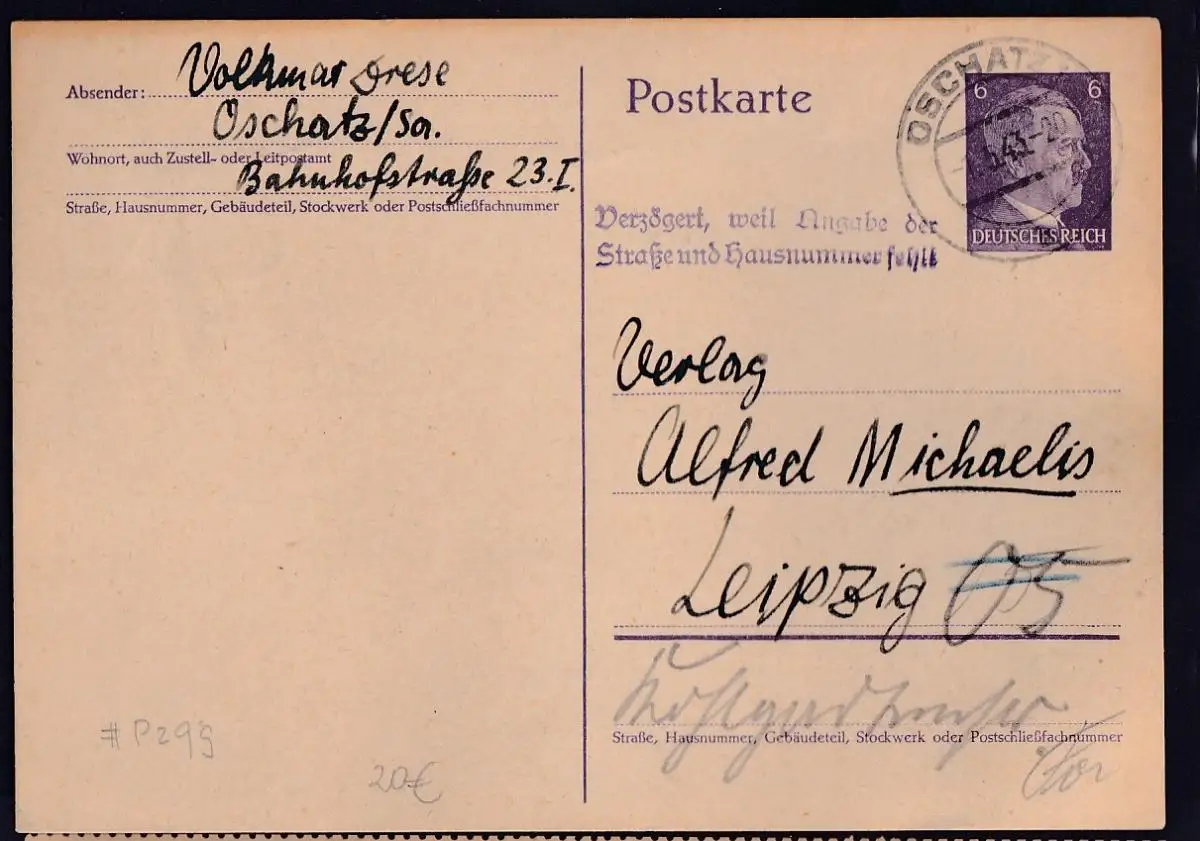 Absender: Volkmar Drese
Oschatz/Sa.
Wohnort, auch Zustell- oder Leitpostamt
Bahnhofstraße 23.I.
Straße, Hausnummer, Gebäudeteil, Stockwerk oder Postschließfachnummer
Postkarte
OSCHATZ
43.-20
6 6
DEUTSCHES REICH
Verzögert, weil Angabe der
Straße und Hausnummer fehlt
Verlag
Alfred Michaelis
Leipzig O5
Straße, Hausnummer, Gebäudeteil, Stockwerk oder Postschließfachnummer
# P299
20€